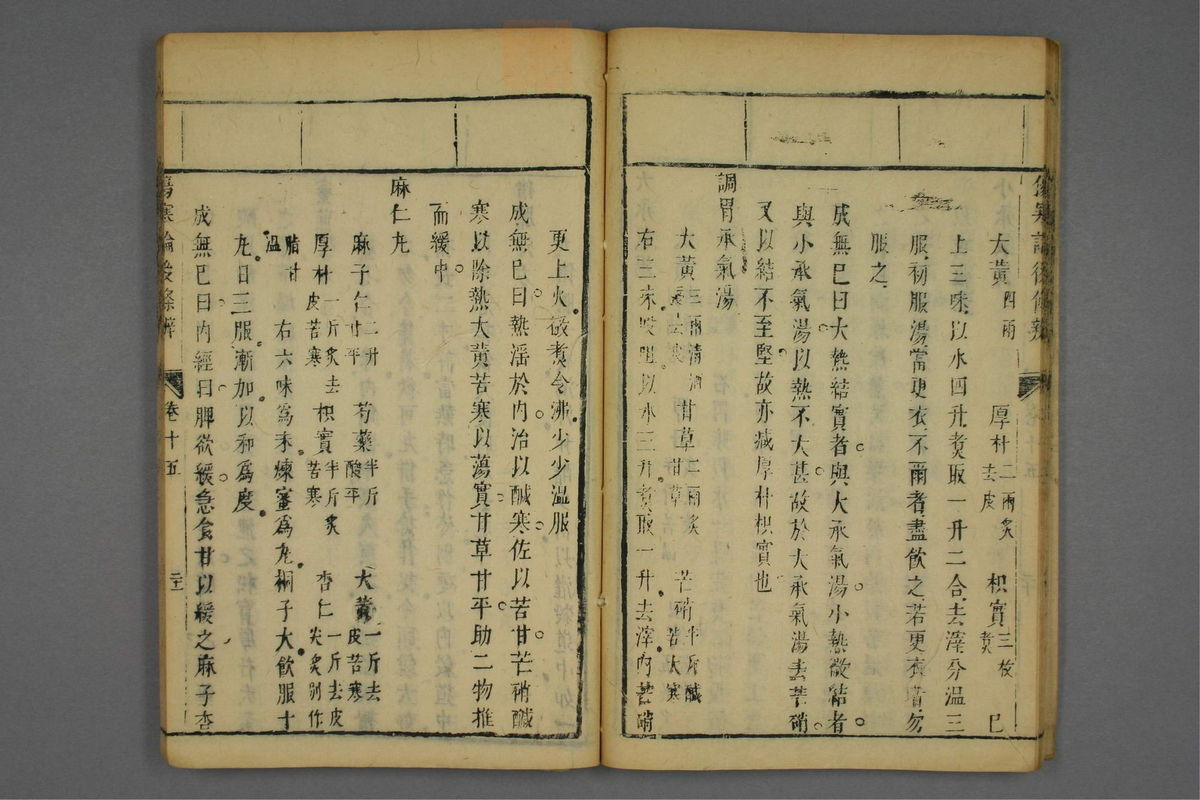 大黃四兩　厚朴二兩炙去皮　枳實三枚煑　已
上三味以水四升煑取一升二合去滓分温三
服初服湯當更衣不爾者盡飲之若更衣者勿
服之
成無巳曰大熱結實者與大承氣湯小熱微結者
與小承氣湯以熱不大甚故於大承氣湯去芒硝
又以結不至堅故亦减厚朴枳實也
調胃承氣湯
大黃三兩清酒去皮　甘草二兩炙甘草　芒硝半斤鹹苦大寒
右三味㕮咀以水三升煑取一升去滓内芒硝
更上火微煑令沸少少温服
成無巳曰熱淫於内治以鹹寒佐以苦甘芒硝鹹
寒以除熱大黃苦寒以蕩實甘草甘平助二物推
而緩中
麻仁丸
麻子仁二升甘平　芍藥半斤酸平　大黃一斤去皮苦寒
厚朴一斤炙去皮苦寒　枳實半斤炙苦寒　杏仁一斤去皮尖炙别作
脂甘温　右六味爲末煉蜜爲丸桐子大飲服十
丸日三服漸加以和爲度
傷寒論後條辨　卷十五　二十二
成無巳曰内經曰脾欲緩急食甘以緩之麻子杏